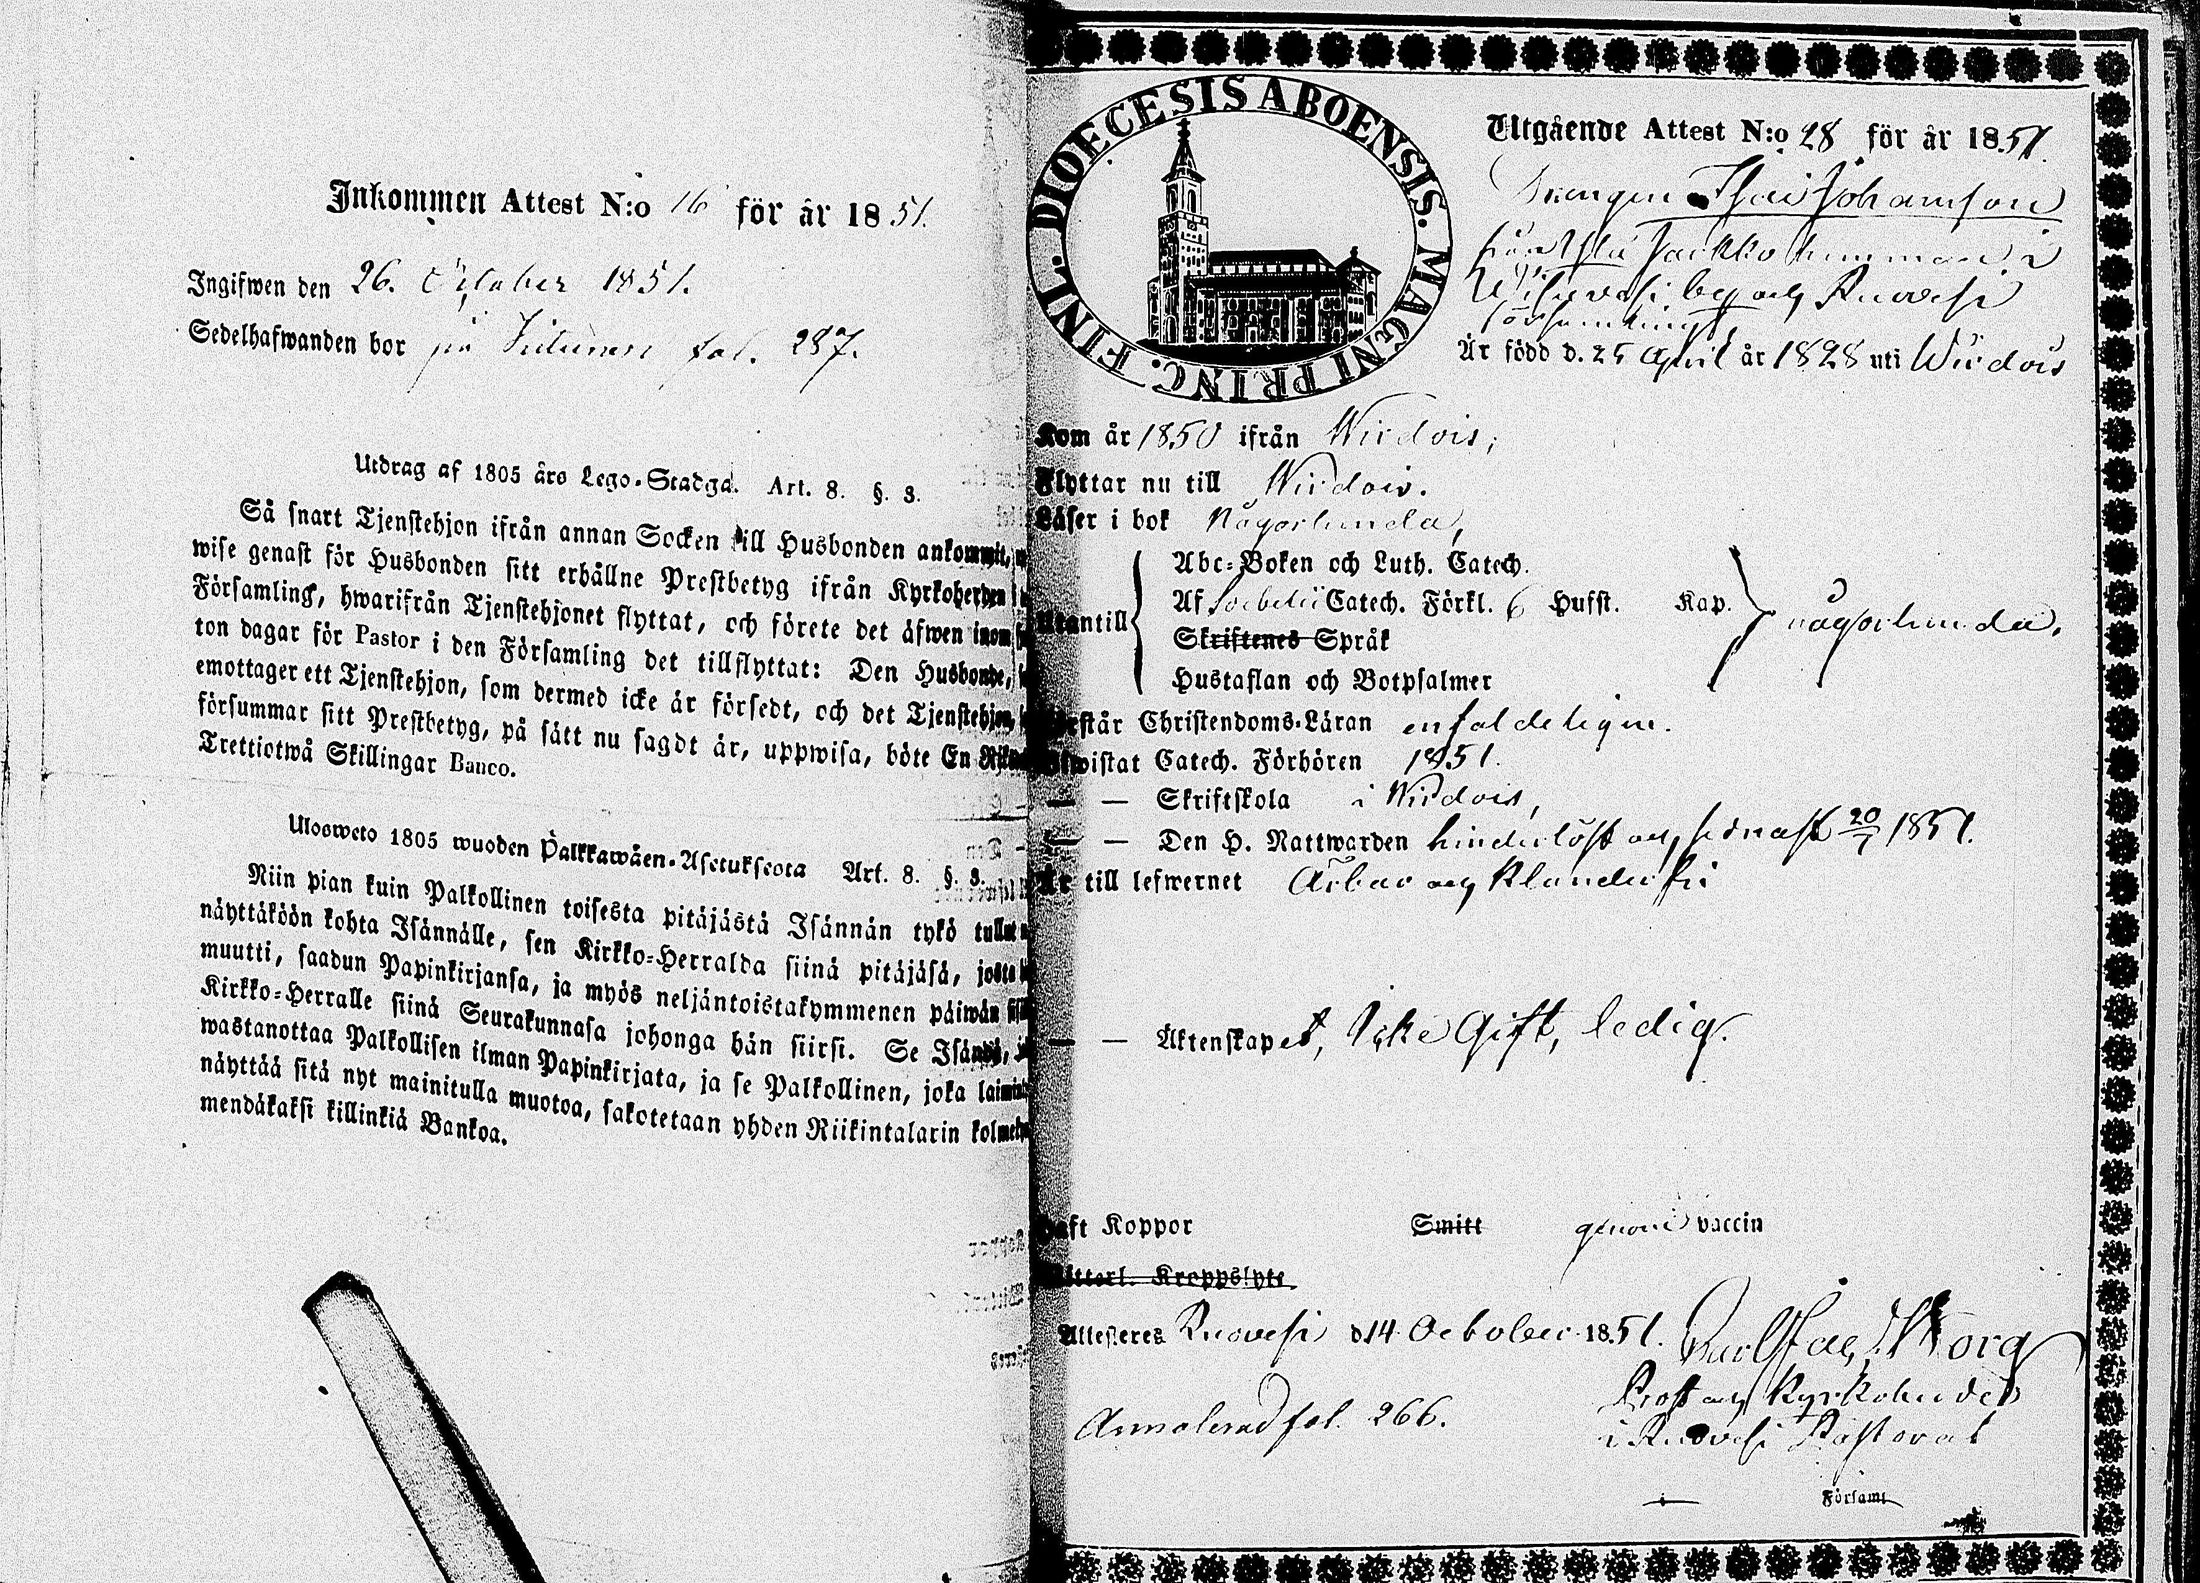 Inkommen Attest N:o 16 för år 1851.
Ingifwen den 26. October 1851.
Sedelhafwanden bor på fol. 287.
Utdrag af 1805 års Lego-Stadga. Art. 8. §. 3.
Så snart Tjenstehjon ifrån annan Socken till Husbonden ankommit,
wise genast för Husbonden sitt erhållne Prestbetyg ifrån Kyrkoherden i
Församling, hwarifrån Tjenstehjonet flyttat, och förete det äfwen inom
ton dagar för Pastor i den Församling det tillflyttat: Den Husbonde,
emottager ett Tjenstehjon, som dermed icke är försedt, och det Tjenstehjon,
försummar sitt Prestbetyg, på sätt nu sagdt är, uppwisa, böte En
Trettiotwå Skillingar Banco.
Ulosweto 1805 wuoden Palkkawäen-Asetuksesta Art. 8. §. 3.
Niin pian kuin Palkollinen toisesta pitäjästä Isännän tykö tullut
näyttäköön kohta Isännälle, sen Kirkko-Herralda siinä pitäjäsä, josta
muutti, saadun Papinkirjansa, ja myös neljäntoistakymmenen päiwän
Kirkko-Herralle siinä Seurakunnasa johonga hän siirsi. Se Isändä,
wastanottaa Palkollisen ilman Papinkirjata, ja se Palkollinen, joka
näyttää sitä nyt mainitulla muotoa, sakotetaan yhden Riikintalarin
mendäkaksi killinkiä Bankoa.
DIOECESIS ABOENSIS. MAGNI PRINC. FINL.
Utgående Attest N:o 28 för år 1851.
Drengen Isac Johansson
från Jackko hemman i
by och Ruovesi
församling
Är född d. 25 April år 1828 uti Wirdois
Kom år 1850 ifrån Wirdois,
Flyttar nu till Wirdois.
Läser i bok någorlunda,
Utantill
Abc-Boken och Luth. Catech.
Af Svebelii Catech. Förkl. 6 Hufst. Kap.
Skriftenes Språk
Hustaflan och Botpsalmer
någorlunda.
Förstår Christendoms-Läran enfaldeligen.
Bewistat Catech. Förhören 1851.
— — Skriftskola i Wirdois,
— — Den H. Nattwarden hinderlöst och sednast 20/7 1851.
Är till lefwernet Ärbar och klanderfri
— — Äktenskapet, Icke Gift, ledig.
Haft Koppor Smitt genom vaccin
Ytterl. Kroppslyte
Attesteres Ruovesi d. 14 October 1851.
Prost och Kyrkoherde
i Ruovesi Pastorat
Annoterad fol. 266.
i Församl